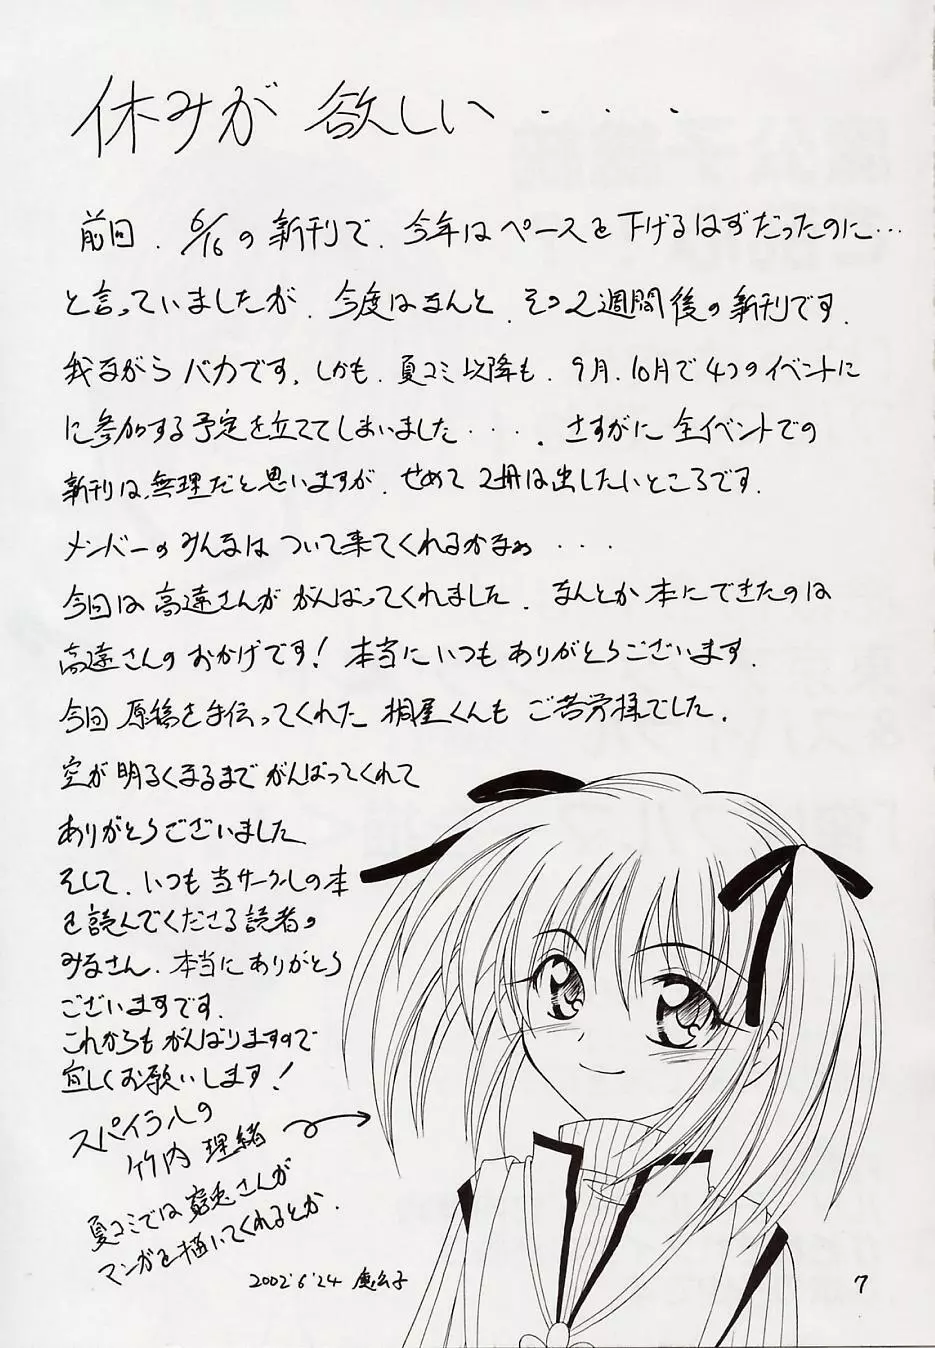 休みが 欲しい・・・
前回、6/16の新刊で、今年はペースを下げるはずだったのに…
と言っていましたが、今度はなんと、その2週間後の新刊です。
我ながらバカです。しかも、夏コミ以降も、9月、10月で4つのイベントに
に参加する予定を立ててしまいました・・・。さすがに全イベントでの
新刊は、無理だと思いますが、せめて2冊は出したいところです。
メンバーのみんなはついて来てくれるかなぁ・・・
今回は高遠さんががんばってくれました。なんとか本にできたのは
高遠さんのおかげです！本当にいつもありがとうございます。
今回原稿を手伝ってくれた桐屋くんもご苦労様でした。
空が明るくなるまでがんばってくれて
ありがとうございました
そして、いつも当サークルの本
を読んでくださる読者の
みなさん、本当にありがとう
ございますです。
これからもがんばりますので
宜しくお願いします！
スパイラルの
竹内 理緒
夏コミでは 兎さんが
マンガを描いてくれるとか。
2002'6'24
7